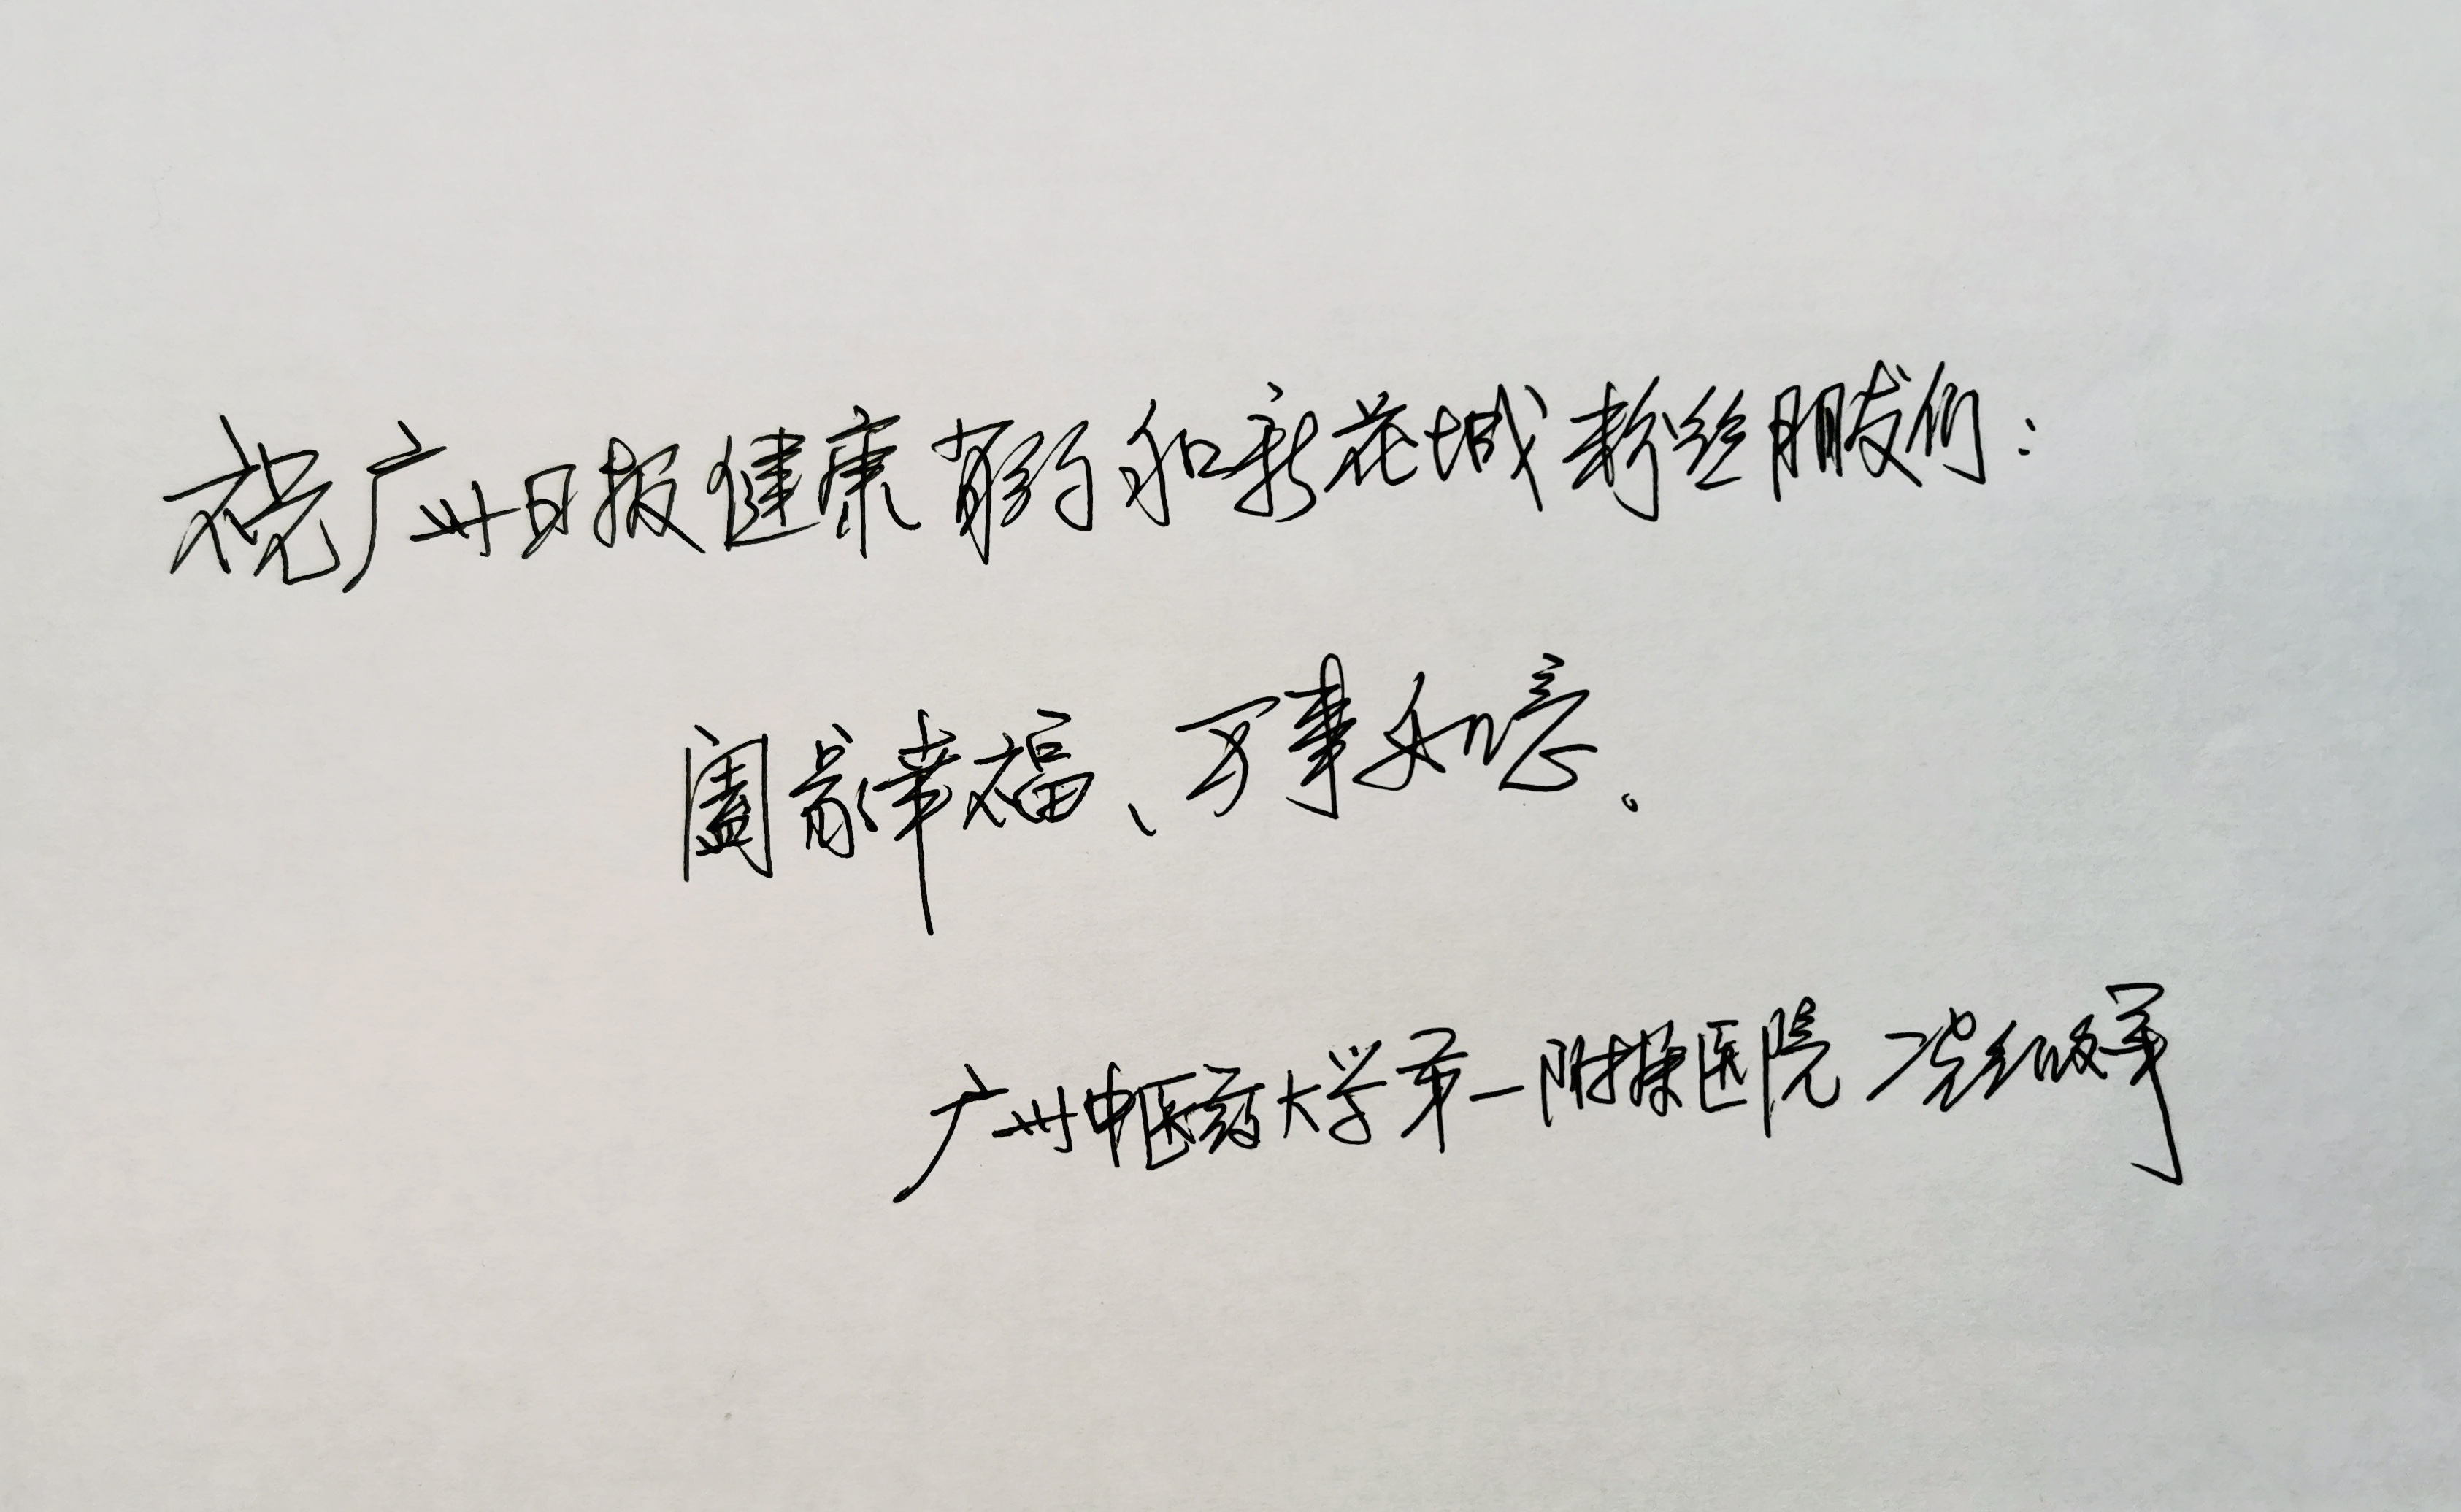 祝广州日报健康有约和新花城粉丝朋友们：
阖家幸福、万事如意。
广州中医药大学第一附属医院